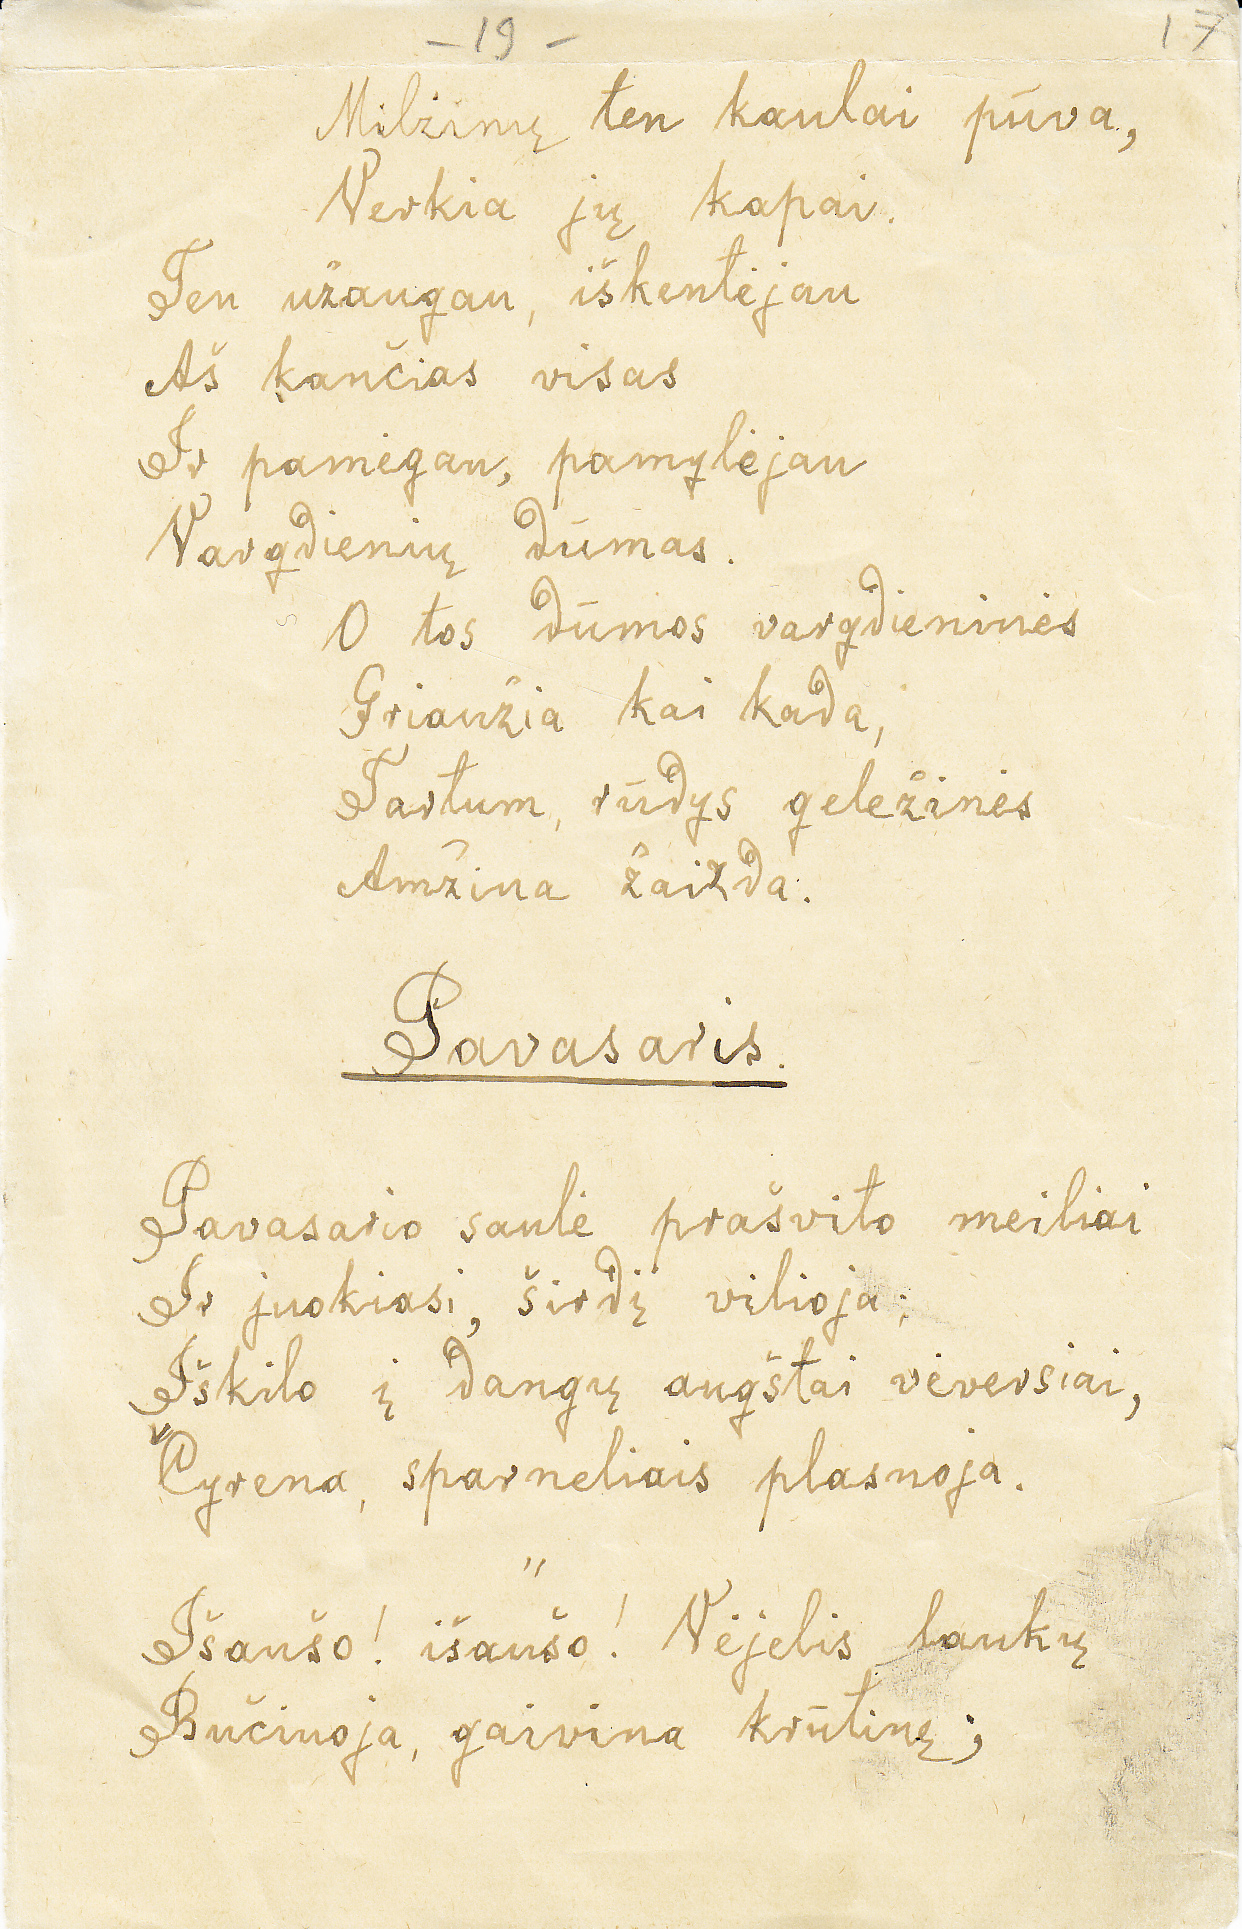 – 19 –
17
Milžinų ten kaulai pūva,
Verkia jų kapai.
Ten užaugau, iškentėjau
Aš kančias visas
Ir pamėgau, pamylėjau
Vargdienių dūmas.
O tos dūmos vargdieninės
Griaužia kai kada,
Tartum, rūdys geležinės
Amžina žaizda.
Pavasaris.
Pavasario saulė prašvito meiliai
Ir juokiasi, širdį vilioja;
Iškilo į dangų augštai vėversiai,
Čyrena, sparneliais plasnoja.
"
Išaušo! išaušo! Vėjelis laukų
Bučiuoja, gaivina krūtinę;